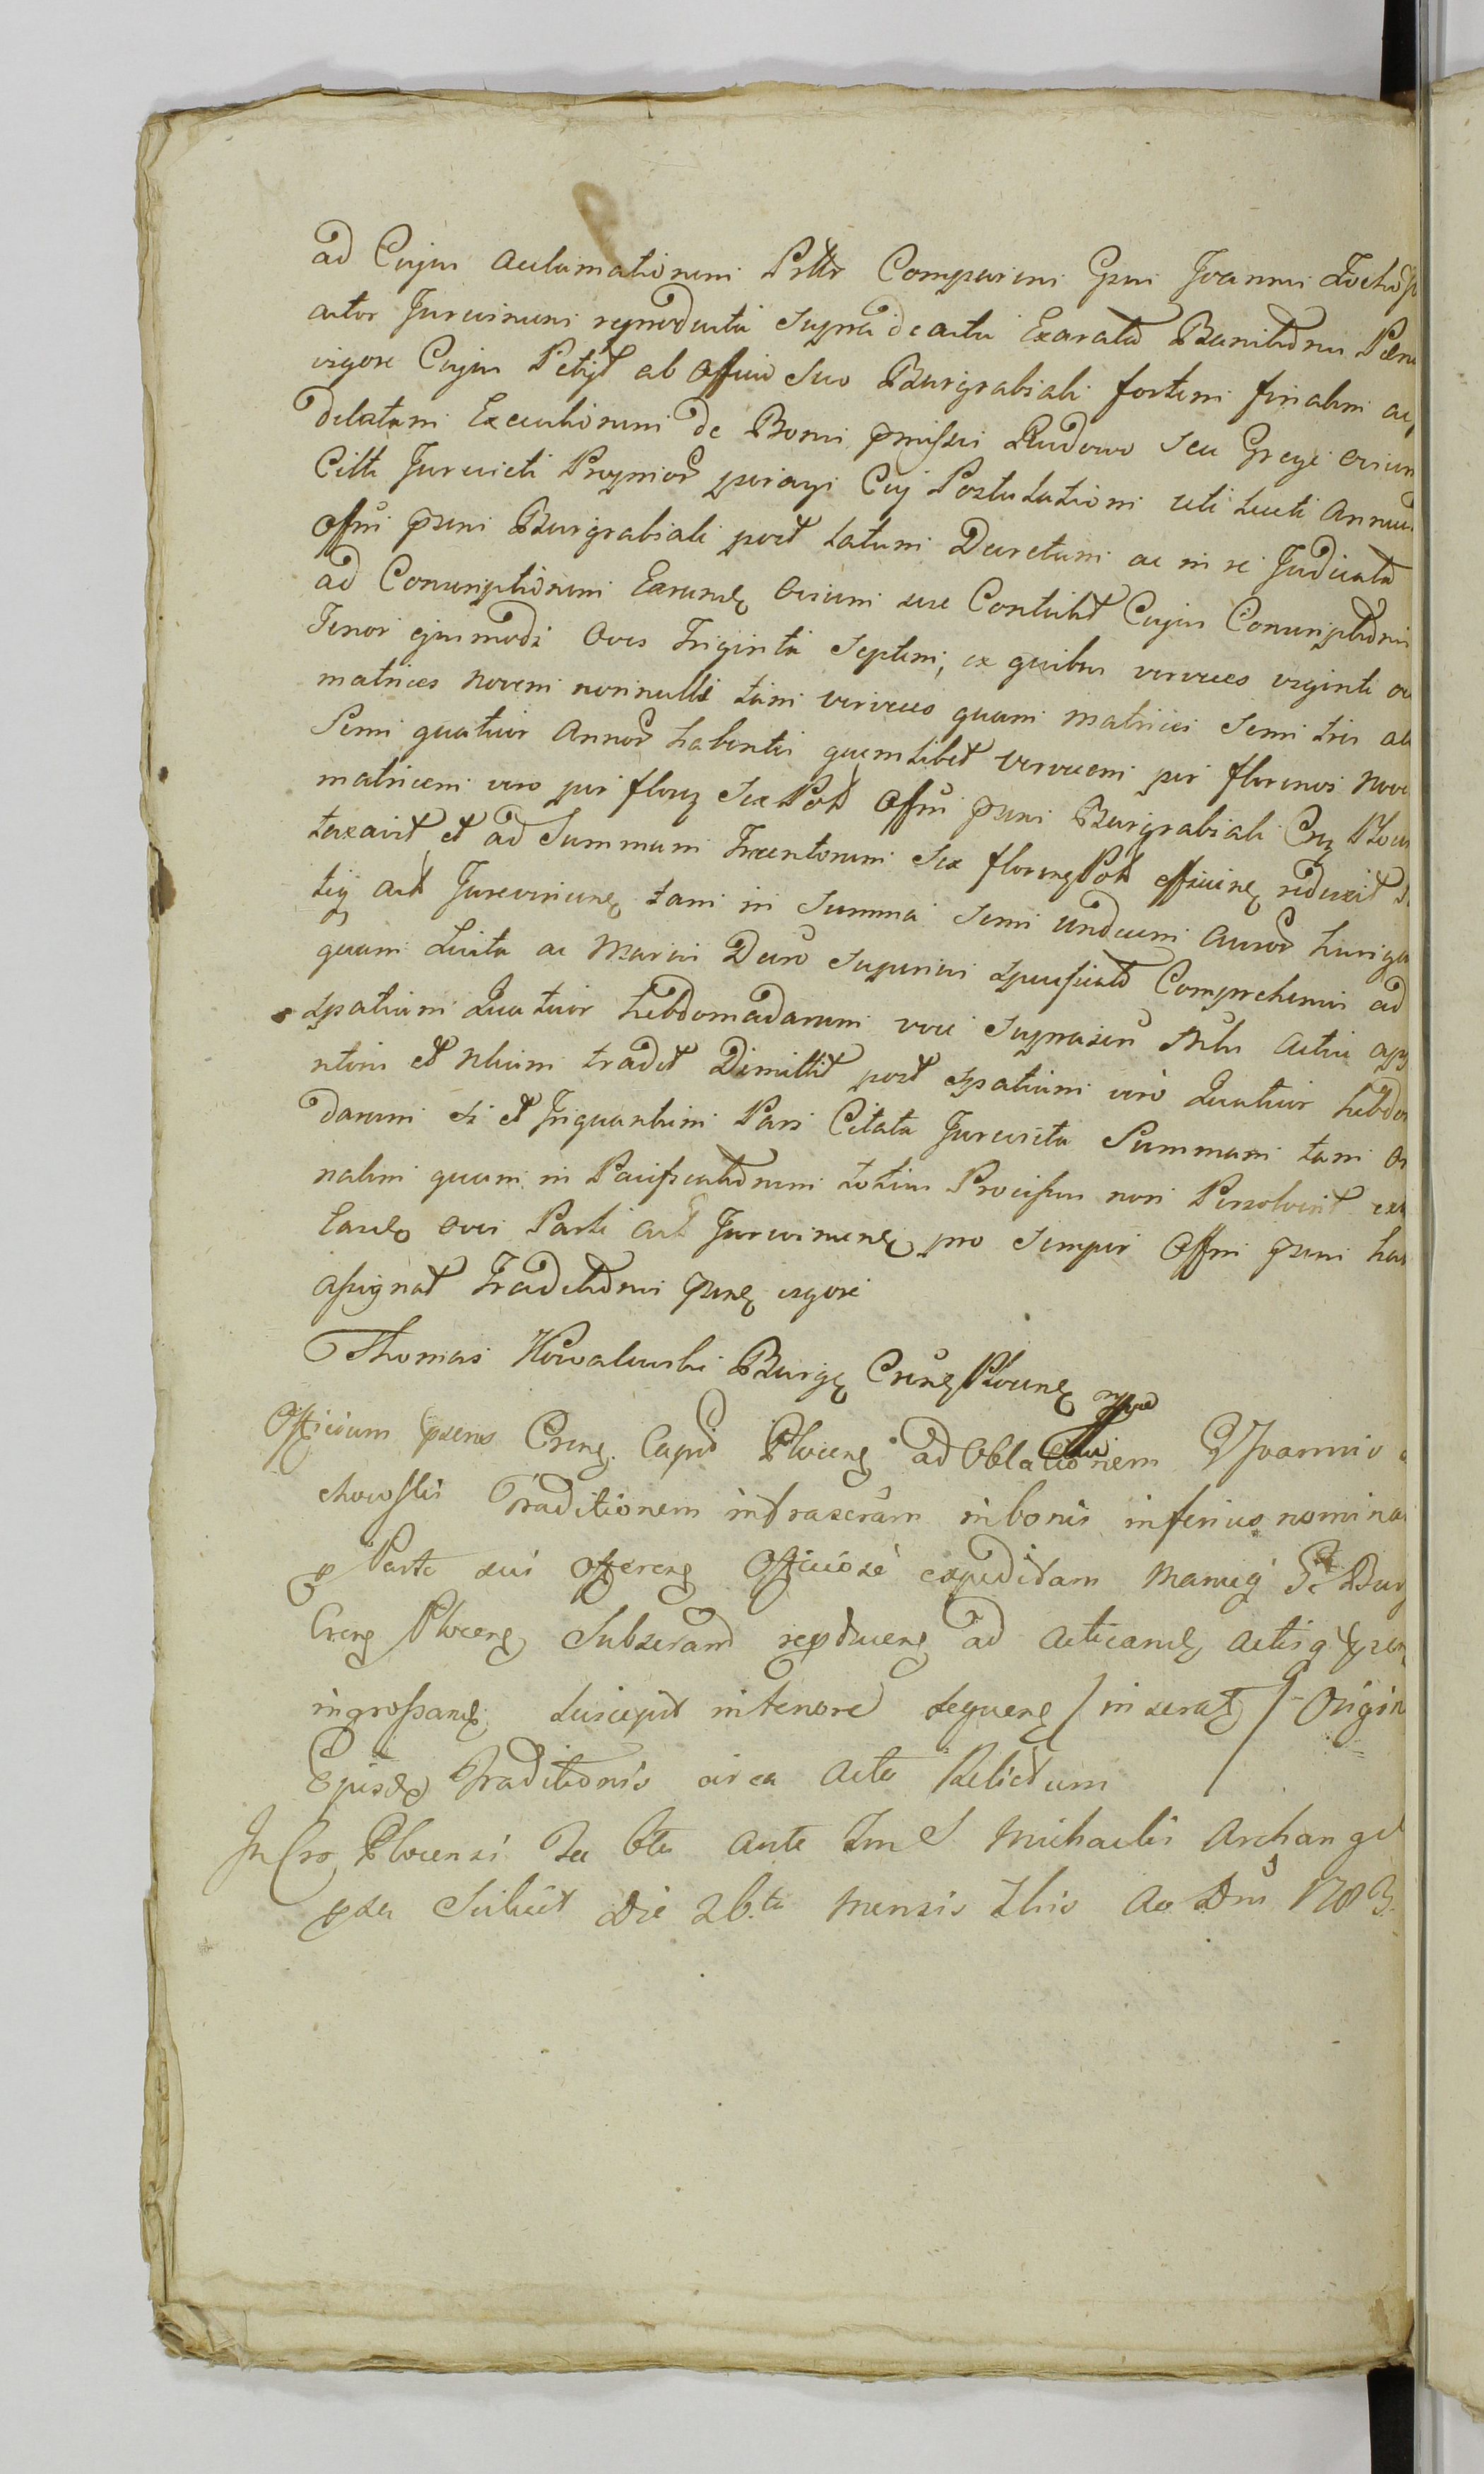 ad Cujus acclamationem Pttr Comparens Gsus Joannes Zocho
actor Jurevincens reproducta supra de actu Exaratd Banitdnis Pæn
vigore Cujus Petiyt ab officio suo Burgrabiali fortem finalem ac
dilatam Executionem de Bonis pmissis Rudowo seu Grege ovium
Citti Jurevicti Pmmor peragi Cuj Postulationi uti lucti Annuen
offm psens Burgrabiale post latum Decretum ac in re Judicata
ad Conscriptionem Earundq ovium sese Contulit Cujus Conscriptdnis
Tenor ejusmodi Oves Triginta Septem, ex quibus verveces viginti oc
matrices novem nonnulli tam verveces quam matrices semi tres al
Semi quatuor Annor habentes quemlibet vervecem per florenos nove
matricem vero per florz Sex Pol Offm psens Burgrabiale Crz Ploc
taxavit et ad Summam Trecentorum Sex florenz Pol efficienq reduxit
tiq act Jurevincenq tam in Summa Semi undecim Aureor hungar
quam Lucta ac Marcis Decro superius specificatd Comprehensis ad
spatium Quatuor hebdomadarum voci suprascri Mbri actus app
ntem et rlium tradit Dimittit post spatium vero Quatuor hebdo
darum si et Inquantum Pars Citata Jurevicta Summam tam Or
nalem quam in Pacificatdnem totius Processus non Persolverit ex
Easdq oves Parti act Jurevincenq pro semper Offm psens ha
assignat Traditdnis psenq vigore
Thomas Kowalewski Burgq CrenqPlocenq mppa
Officium psens Crenq Capit Plocenq ad Oblationem G Joannis
chowskis Traditionem infrascram in bonis inferius nomina
p Parte sui offerenq Officiose expeditam manuq Burg
Crenq Plocenq Subscram repducenq ad acticandq actisq psen
ingrossandq suscepit in tenore sequenq / inseratq / Origin
Episdq Traditionis circa acta Relictum
In Cro Plocensi Fer 6ta ante Fm S Michaelis Archangel
pxa Scilicet Die 26.ta Mensis 7bris Ao Dni 1783.